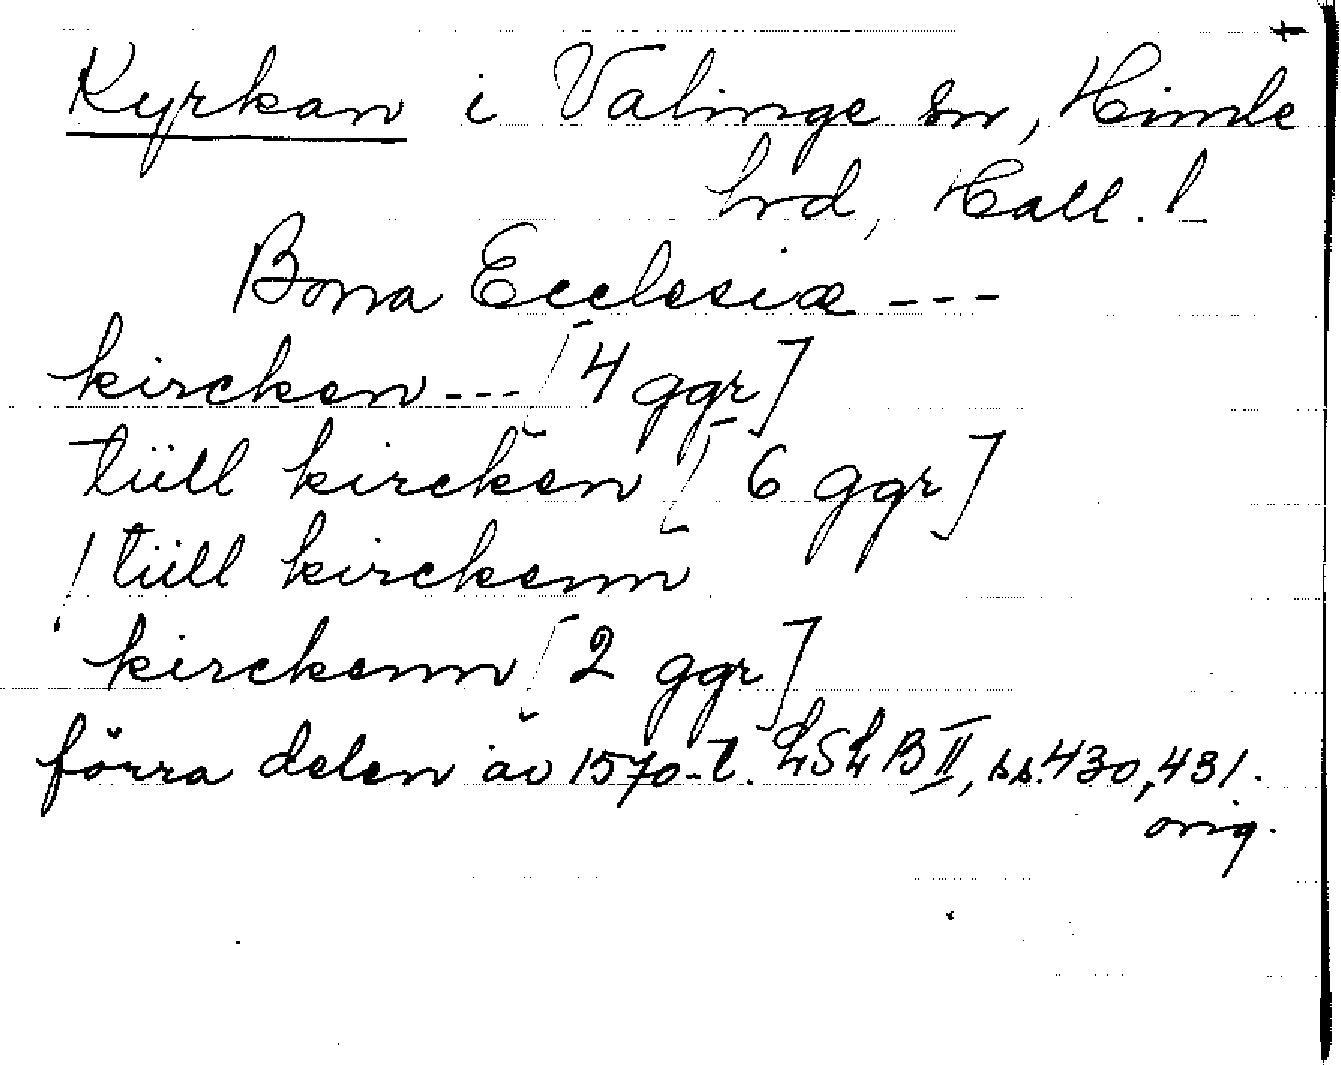 Kyrkan i Valinge sn, Himle
hrd, Hall. l
Bona Ecclesiæ ---
kircken --- [4 ggr]
tüll kircken [6 ggr]
/ tüll kirckenn
kirckenn [2 ggr]
förra delen av 1570-t. LSL B II, ss. 430, 431.
orig.